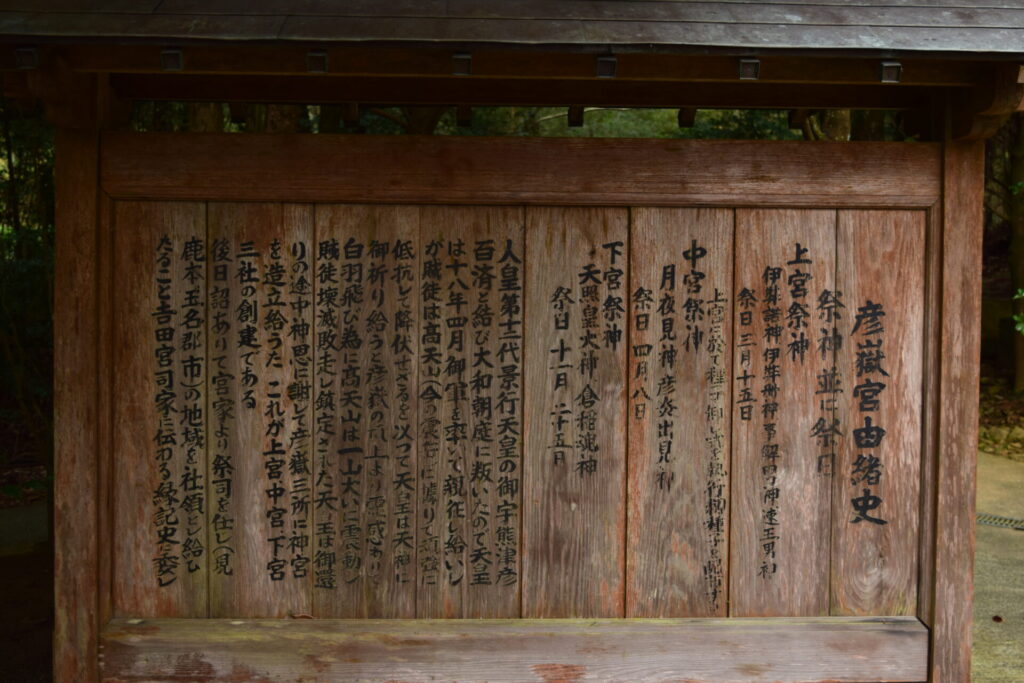 彦嶽宮由緒史
祭神並に祭日
上宮祭神
伊弉諾神 伊弉冊神 事解男神 速玉男神
祭日 三月十五日
上宮に於て種子御
中宮祭神
月夜見神 彦炎出見神
祭日 四月八日
下宮祭神
天照皇大神 倉稲魂神
祭日 十一月二十五日
人皇第十二代景行天皇の御宇熊津彦
百済と結び大和朝庭に叛いたので天皇
は十八年四月御軍を率いて親征し給いし
が賊徒は高天山(今の震岳)に
低抗して降伏せざるを以つて天皇は天神に
御祈り給うと彦嶽の
白羽飛び為に高天山は一山大いに震動し
賊徒壊滅敗走し鎮定された天皇は御還
りの途中神恩に謝して彦嶽三所に神宮
を造立給うた これが上宮中宮下宮
三社の創建である
後日詔ありて官家より祭司を任し(現
鹿本玉名郡市)の地域を社領とし給ひ
たること吉田宮司家に伝わる縁記史に